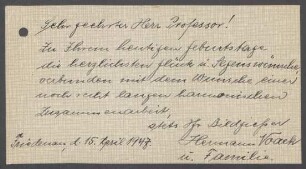 Sehr geehrter Herr Professor!
Zu Ihrem heutigen Geburtstage
die herzlichsten Glück u. Segenswünsche,
verbunden mit dem Wunsche einer
noch recht langen harmonischen
Zusammenarbeit,
stets Ihr Bildgießer
Friedenau, d. 15. April 1943. Hermann Noack
u. Familie.